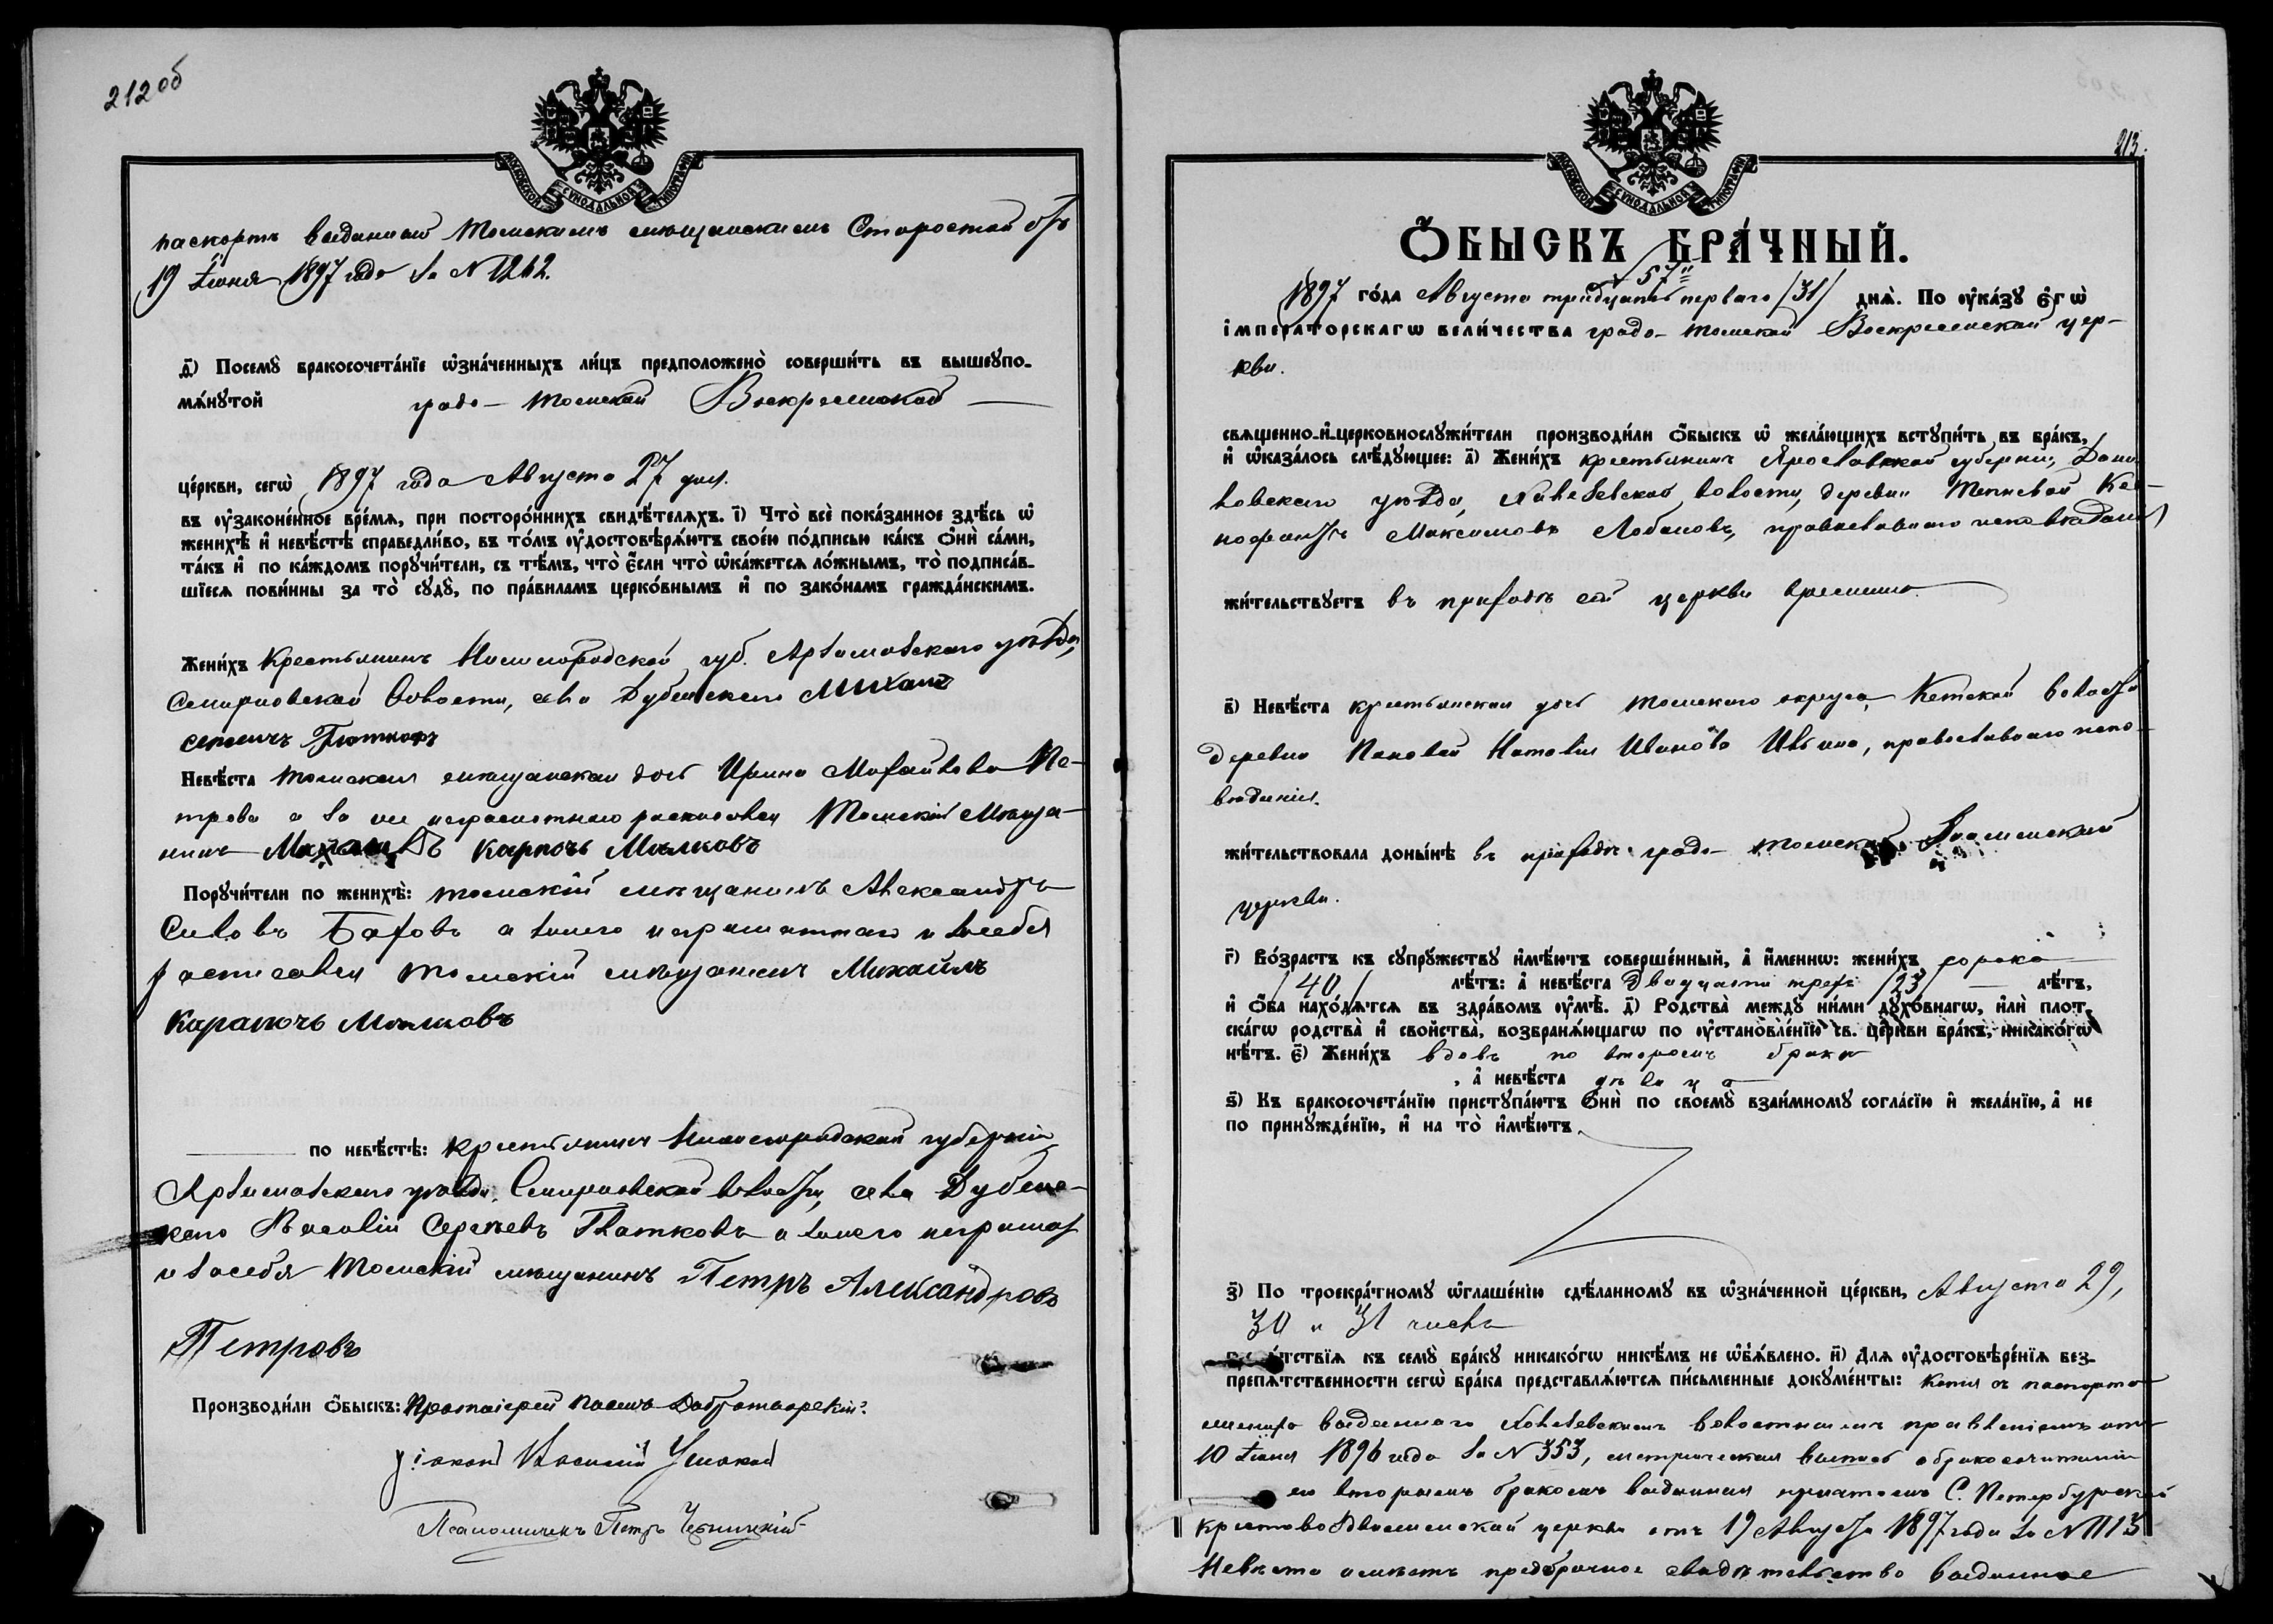 212 об
МОСКОВСКОЙ СѴНОДАЛЬНОЙ ТИПОГРАФІИ
паспортъ выданный Томскимъ мѣщанскимъ Старостой отъ
19 Іюня 1897 года за N 1262.
д҃) Посемꙋ бракосочетаніе ѡзначенныхъ лицъ предположено совершить въ вышеꙋпо-
мѧнꙋтой градо-Томской Воскресенской
церкви, сегѡ 1897 года Августа 27 дня.
въ оузаконенное времѧ, при постороннихъ свидѣтелѧхъ. і҃) Что все показанное здѣсь ѡ
женихѣ и невѣстѣ справедливо, въ томъ оудостовѣрѧютъ своею подписью какъ они сами,
такъ и по каждомъ порꙋчители, съ тѣмъ, что если что ѡкажетсѧ ложнымъ, то подписав-
шіесѧ повинны за то сꙋдꙋ, по правиламъ церковнымъ и по законамъ гражданскимъ.
Женихъ Крестьянинъ Нижегородской губ. Арзамасскаго уѣзда,
Смирновской Волости, села Дубенскаго Михаилъ
Невѣста Томская мѣщанская дочь Ирина Михайлова Пе-
трова а за нее неграмотную росписался Томскій Мѣща-
нинъ Михаилъ Карповъ Мылковъ
Порꙋчители по женихѣ: Томскій мѣщанинъ Александръ
а за него неграмотнаго и за себя
росписался Томскій мѣщанинъ Михаилъ
Карповъ Мылковъ
по невѣстѣ: Крестьянинъ Нижегородской губерніи
Арзамасскаго уѣзда, Смирновской волости, села Дубен-
скаго Василій Сергѣевъ Платковъ а за него неграмот
и за себя Томскій мѣщанинъ Петръ Александровъ
Петровъ
Производили обыскъ: Протоіерей Павелъ Добротворскій.
діаконъ Василій
Псаломщикъ Петръ
213.
МОСКОВСКОЙ СѴНОДАЛЬНОЙ ТИПОГРАФІИ
ОБЫСКЪ БРАЧНЫЙ.
57
1897 года Августа тридцать перваго /31/ днѧ. По оуказꙋ егѡ
императорскагѡ величества градо-Томской Воскресенской цер-
кви.
свѧщенно-и-церковнослꙋжители производили обыскъ ѡ желающихъ встꙋпить въ бракъ,
и ѡказалось слѣдꙋющее: а҃) Женихъ крестьянинъ Ярославской губерніи, Дани
ловскаго уѣзда, волости, деревни Ксе-
нофонтъ Максимовъ Лобановъ, православнаго исповѣданія
жительствꙋетъ въ приходѣ сей церкви временно
в҃) Невѣста крестьянская дочь Томскаго округа, Кетской волости
деревни Пановой Наталія Иванова Ильина, православнаго испо-
вѣданія.
жительствовала донынѣ въ приходѣ градо-Томской Знаменской
церкви.
г҃) Возрастъ къ сꙋпрꙋжествꙋ имѣютъ совершенный, а именнѡ: женихъ сорока
/40/ лѣтъ: а невѣста Двадцати трехъ /23/ лѣтъ,
и оба находѧтсѧ въ здравомъ оумѣ. д҃) Родства междꙋ ними дꙋховнагѡ, или плот-
скагѡ родства и свойства, возбранѧющагѡ по оустановленію св. церкви бракъ, никакогѡ
нѣтъ. е҃) Женихъ вдовъ по второмъ бракѣ
, а невѣста дѣвица
ѕ҃) Къ бракосочетанію пристꙋпаютъ они по своемꙋ взаимномꙋ согласію и желанію, а не
по принꙋжденію, и на то имѣютъ
з҃) По троекратномꙋ ѡглашенію сдѣланномꙋ въ ѡзначенной церкви, Августа 29,
30 и 31 числа
препѧтствіѧ къ семꙋ бракꙋ никакогѡ никѣмъ не ѡб̾ѧвлено. и҃) Длѧ оудостовѣреніѧ без-
препѧтственности сегѡ брака представлѧютсѧ письменные докꙋменты: Копія съ паспорта
жениха выданнаго волостнымъ правленіемъ отъ
10 Іюня 1896 года за N 353, метрическая выпись о бракосочетаніи
его вторымъ бракомъ выданная причтомъ С. Петербургской
Крестовоздвиженской церкви отъ 19 Августа 1897 года за N 1113
Невѣста имѣетъ предбрачное свидѣтельство выданное